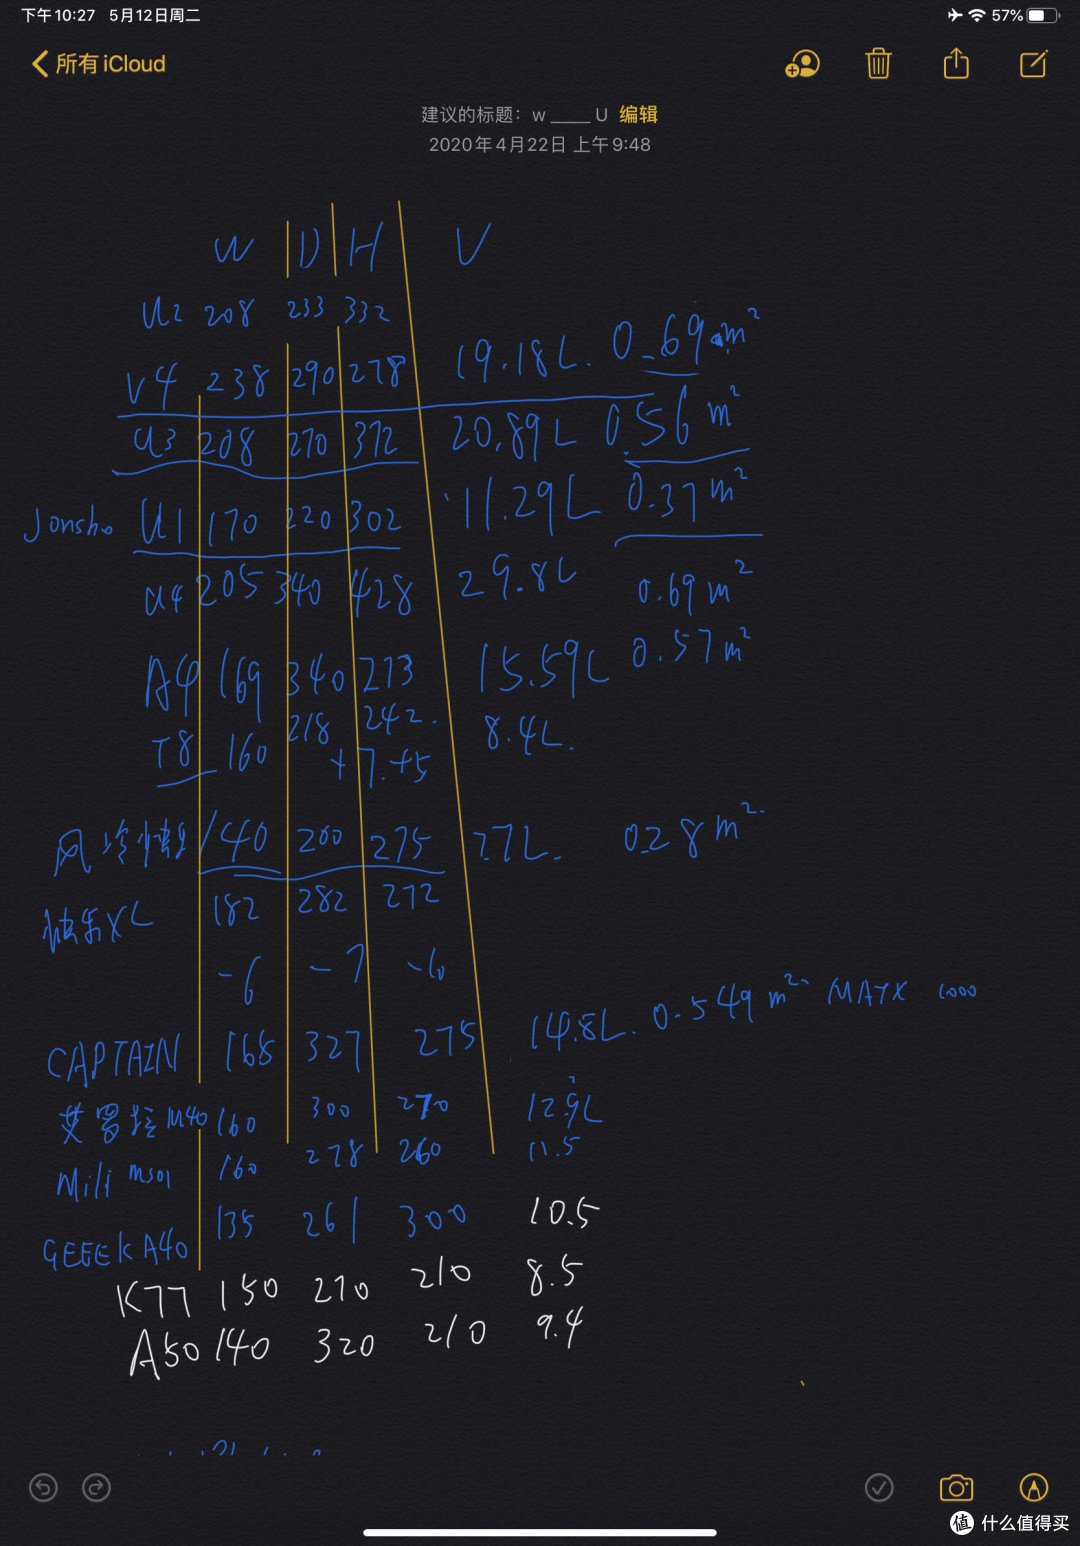 下午10:27 5月12日周二 57%
所有 iCloud
建议的标题：w ____ U 编辑
2020年4月22日 上午9:48
W D H V
U2 208 233 332
V4 238 290 278 19.18L. 0.69 m²
U3 208 270 372 20.89L 0.56 m²
Jonsbo U1 170 220 302 11.29L 0.37 m²
U4 205 340 428 29.8L 0.69 m²
A4 169 340 273 15.59L 0.57 m²
T8 160 218 242. 8.4L.
+7.+5
风冷快乐 140 200 275 7.7L. 0.28 m²
快乐XL 182 282 272
-6 -7 -6
CAPTAIN 165 327 275 14.8L. 0.549 m² MATX
艾罗拉 M40 160 300 270 12.9L
Mili ms01 160 278 260 11.5
GEEEK A40 135 261 300 10.5
K77 150 270 210 8.5
A50 140 320 210 9.4
值 什么值得买